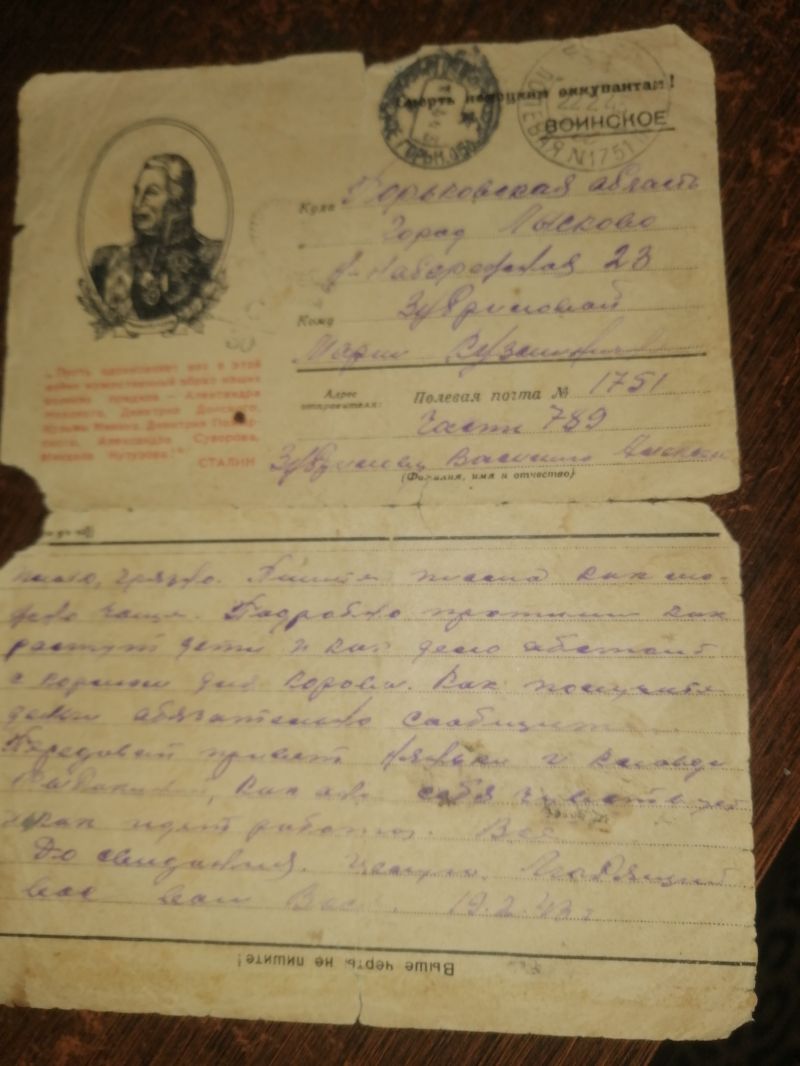 Смерть немецким оккупантам!
ВОИНСКОЕ
ПОЛЕВАЯ №1751
Куда Горьковская область
Город Лысково
Набережная 23
Кому
Марии
„Пусть вдохновляет вас в этой
войне мужественный образ наших
великих предков — Александра
Невского, Димитрия Донского,
Кузьмы Минина, Димитрия Пожар-
ского, Александра Суворова,
Михаила Кутузова!“
СТАЛИН
Адрес
отправителя:
Полевая почта № 1751
Часть 789
Василий
(Фамилия, имя и отчество)
грязно. Пишите письма как мо-
жно чаще. Подробно пропиши как
растут дети и как дело обстоит
с кормом для коровы. Как получите
деньги обязательно сообщите
Передавай привет няньки и
как она себя чувствует
и как идет работа. Все
До свидания. Целую. Любящий
вас ваш Вася. 19.2.43 г
Выше черты не пишите!